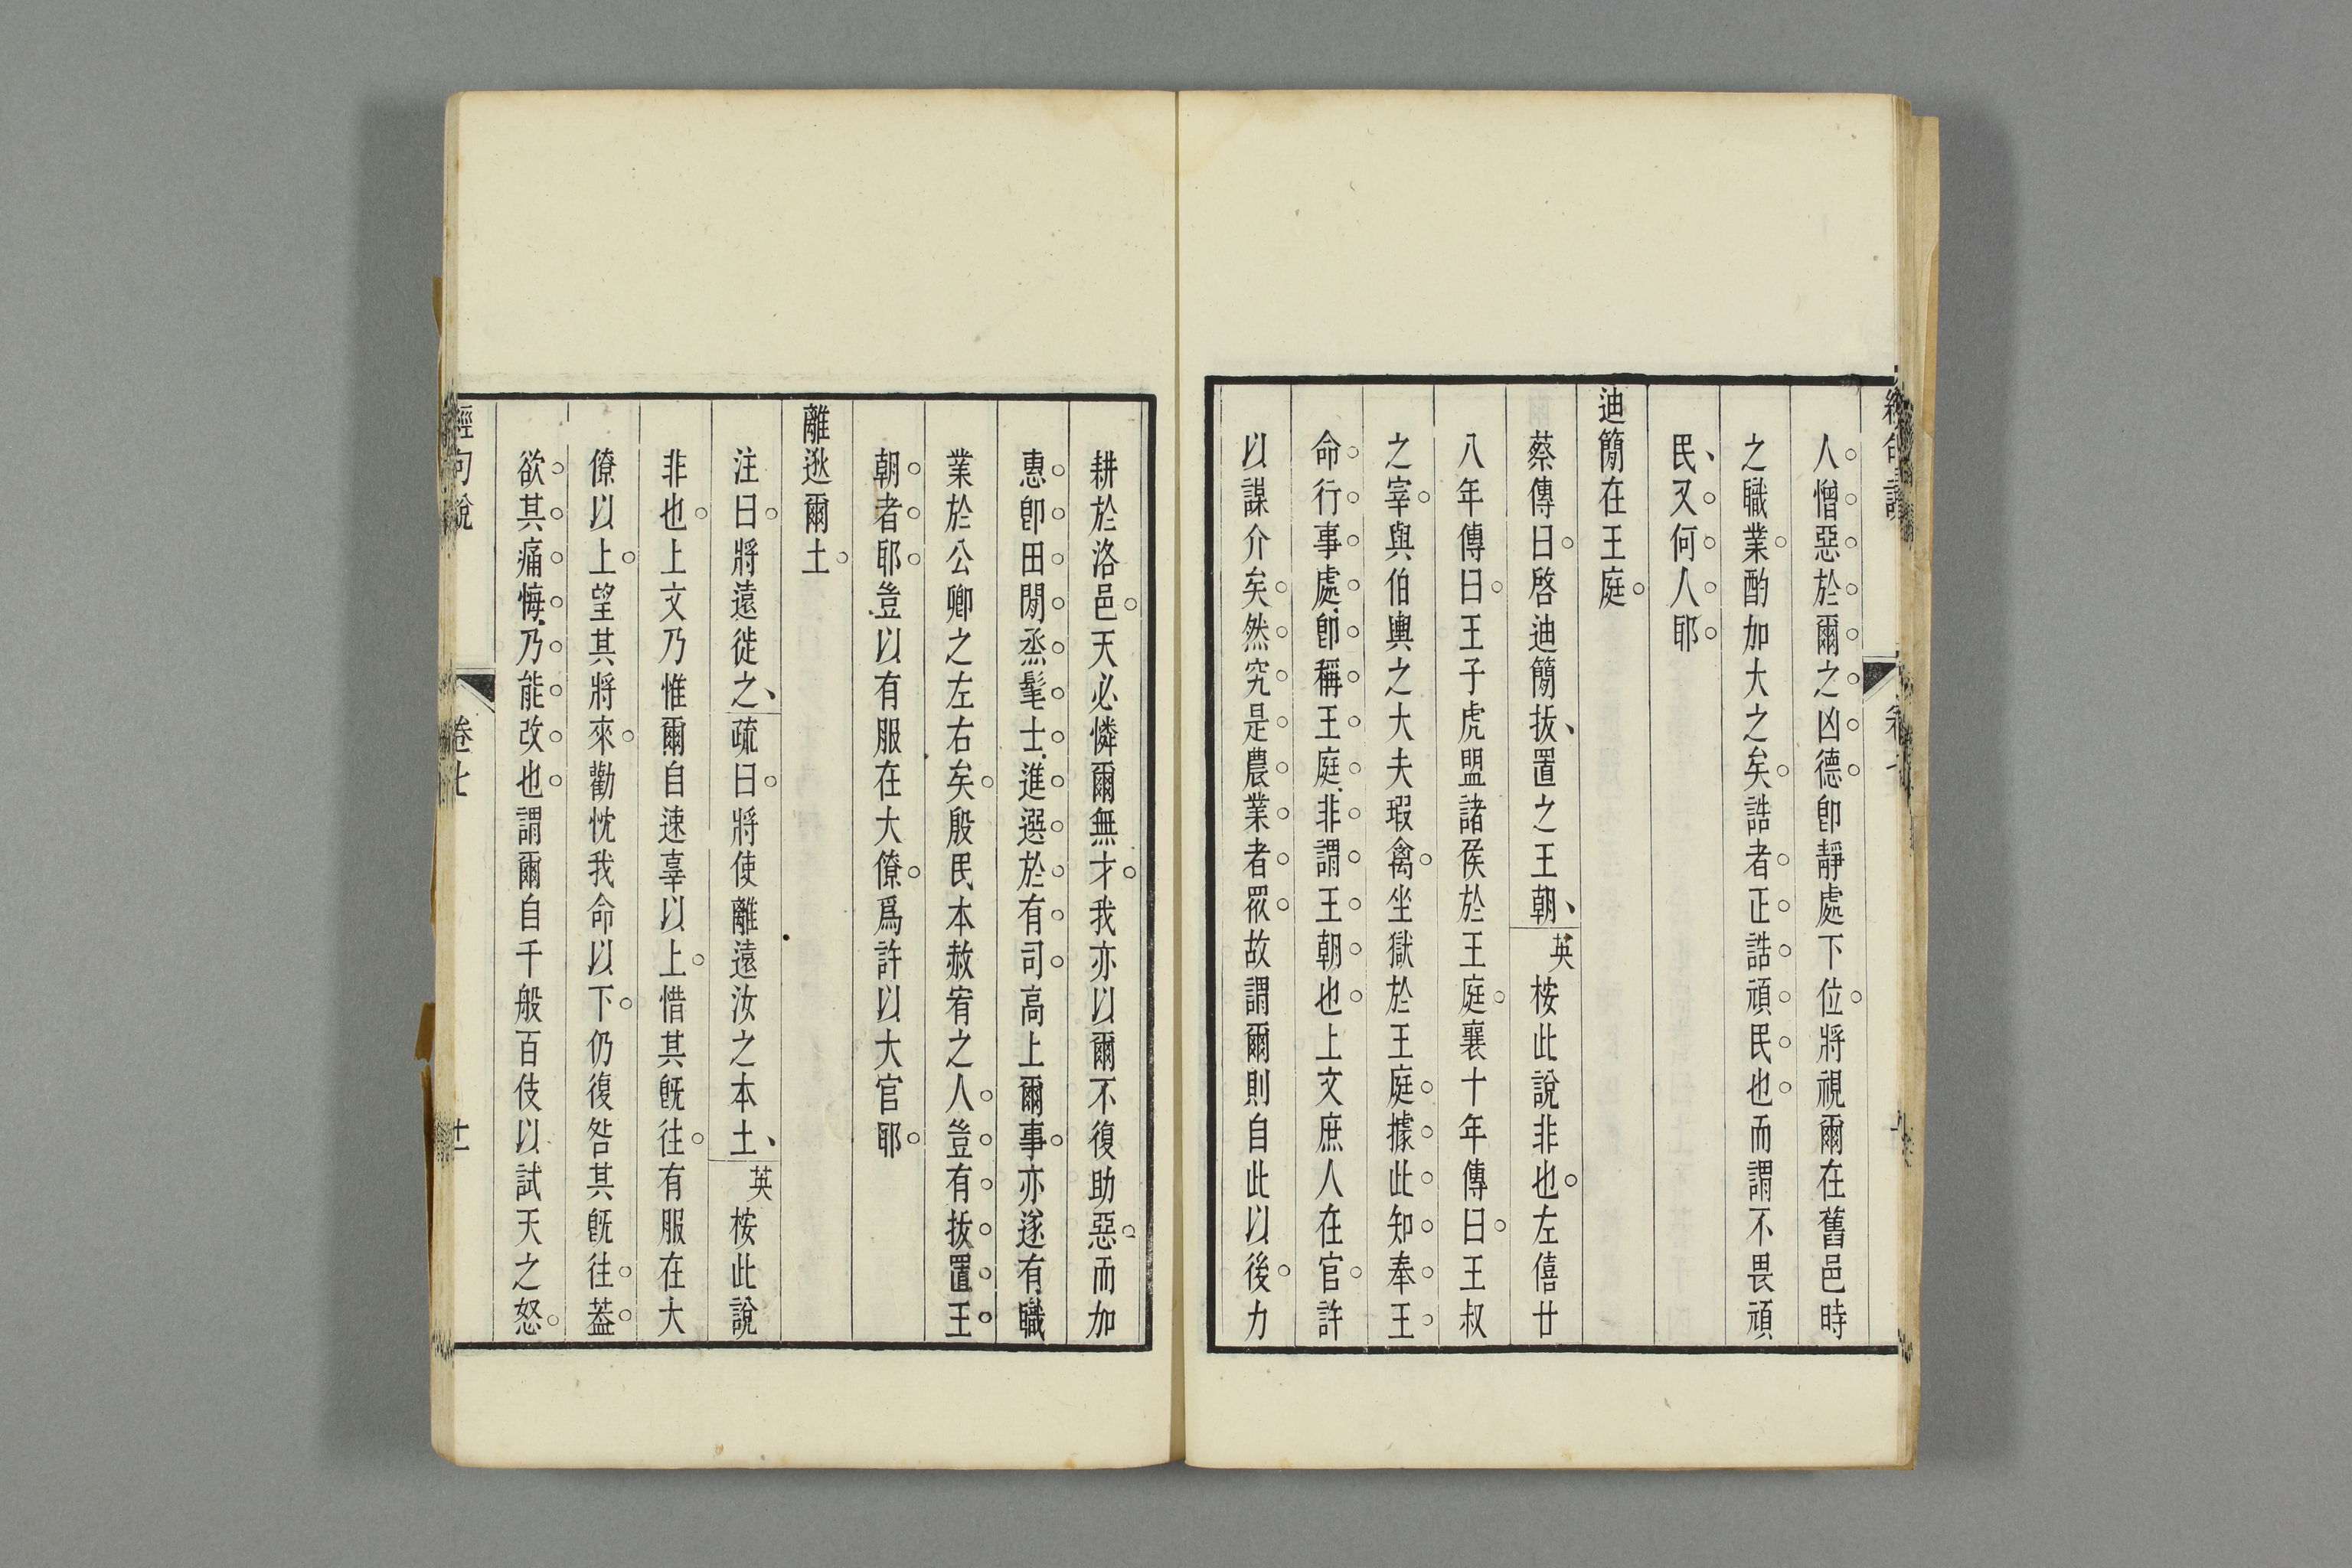 人憎惡於爾之凶德卽靜處下位將視爾在舊邑時
之職業酌加大之矣誥者正誥頑民也而謂不畏頑
民又何人耶
迪簡在王庭
蔡傳曰啓迪簡拔置之王朝英桉此說非也左僖廿
八年傳曰王子虎盟諸侯於王庭襄十年傳曰王叔
之宰與伯輿之大夫瑕禽坐獄於王庭據此知奉王
命行事處卽稱王庭非謂王朝也上文庶人在官許
以謀介矣然究是農業者眾故謂爾則自此以後力
耕於洛邑天必憐爾無才我亦以爾不復助惡而加
惠卽田閒烝髦士進選於有司高上爾事亦遂有職
業於公卿之左右矣殷民本赦宥之人豈有拔置王
朝者耶豈以有服在大僚爲許以大官耶
離逖爾土
注曰將遠徙之疏曰將使離遠汝之本土英桉此說
非也上文乃惟爾自速辜以上惜其旣往有服在大
僚以上望其將來勸忱我命以下仍復咎其旣往葢
欲其痛悔乃能改也謂爾自千般百伎以試天之怒
經句說 卷七 十一